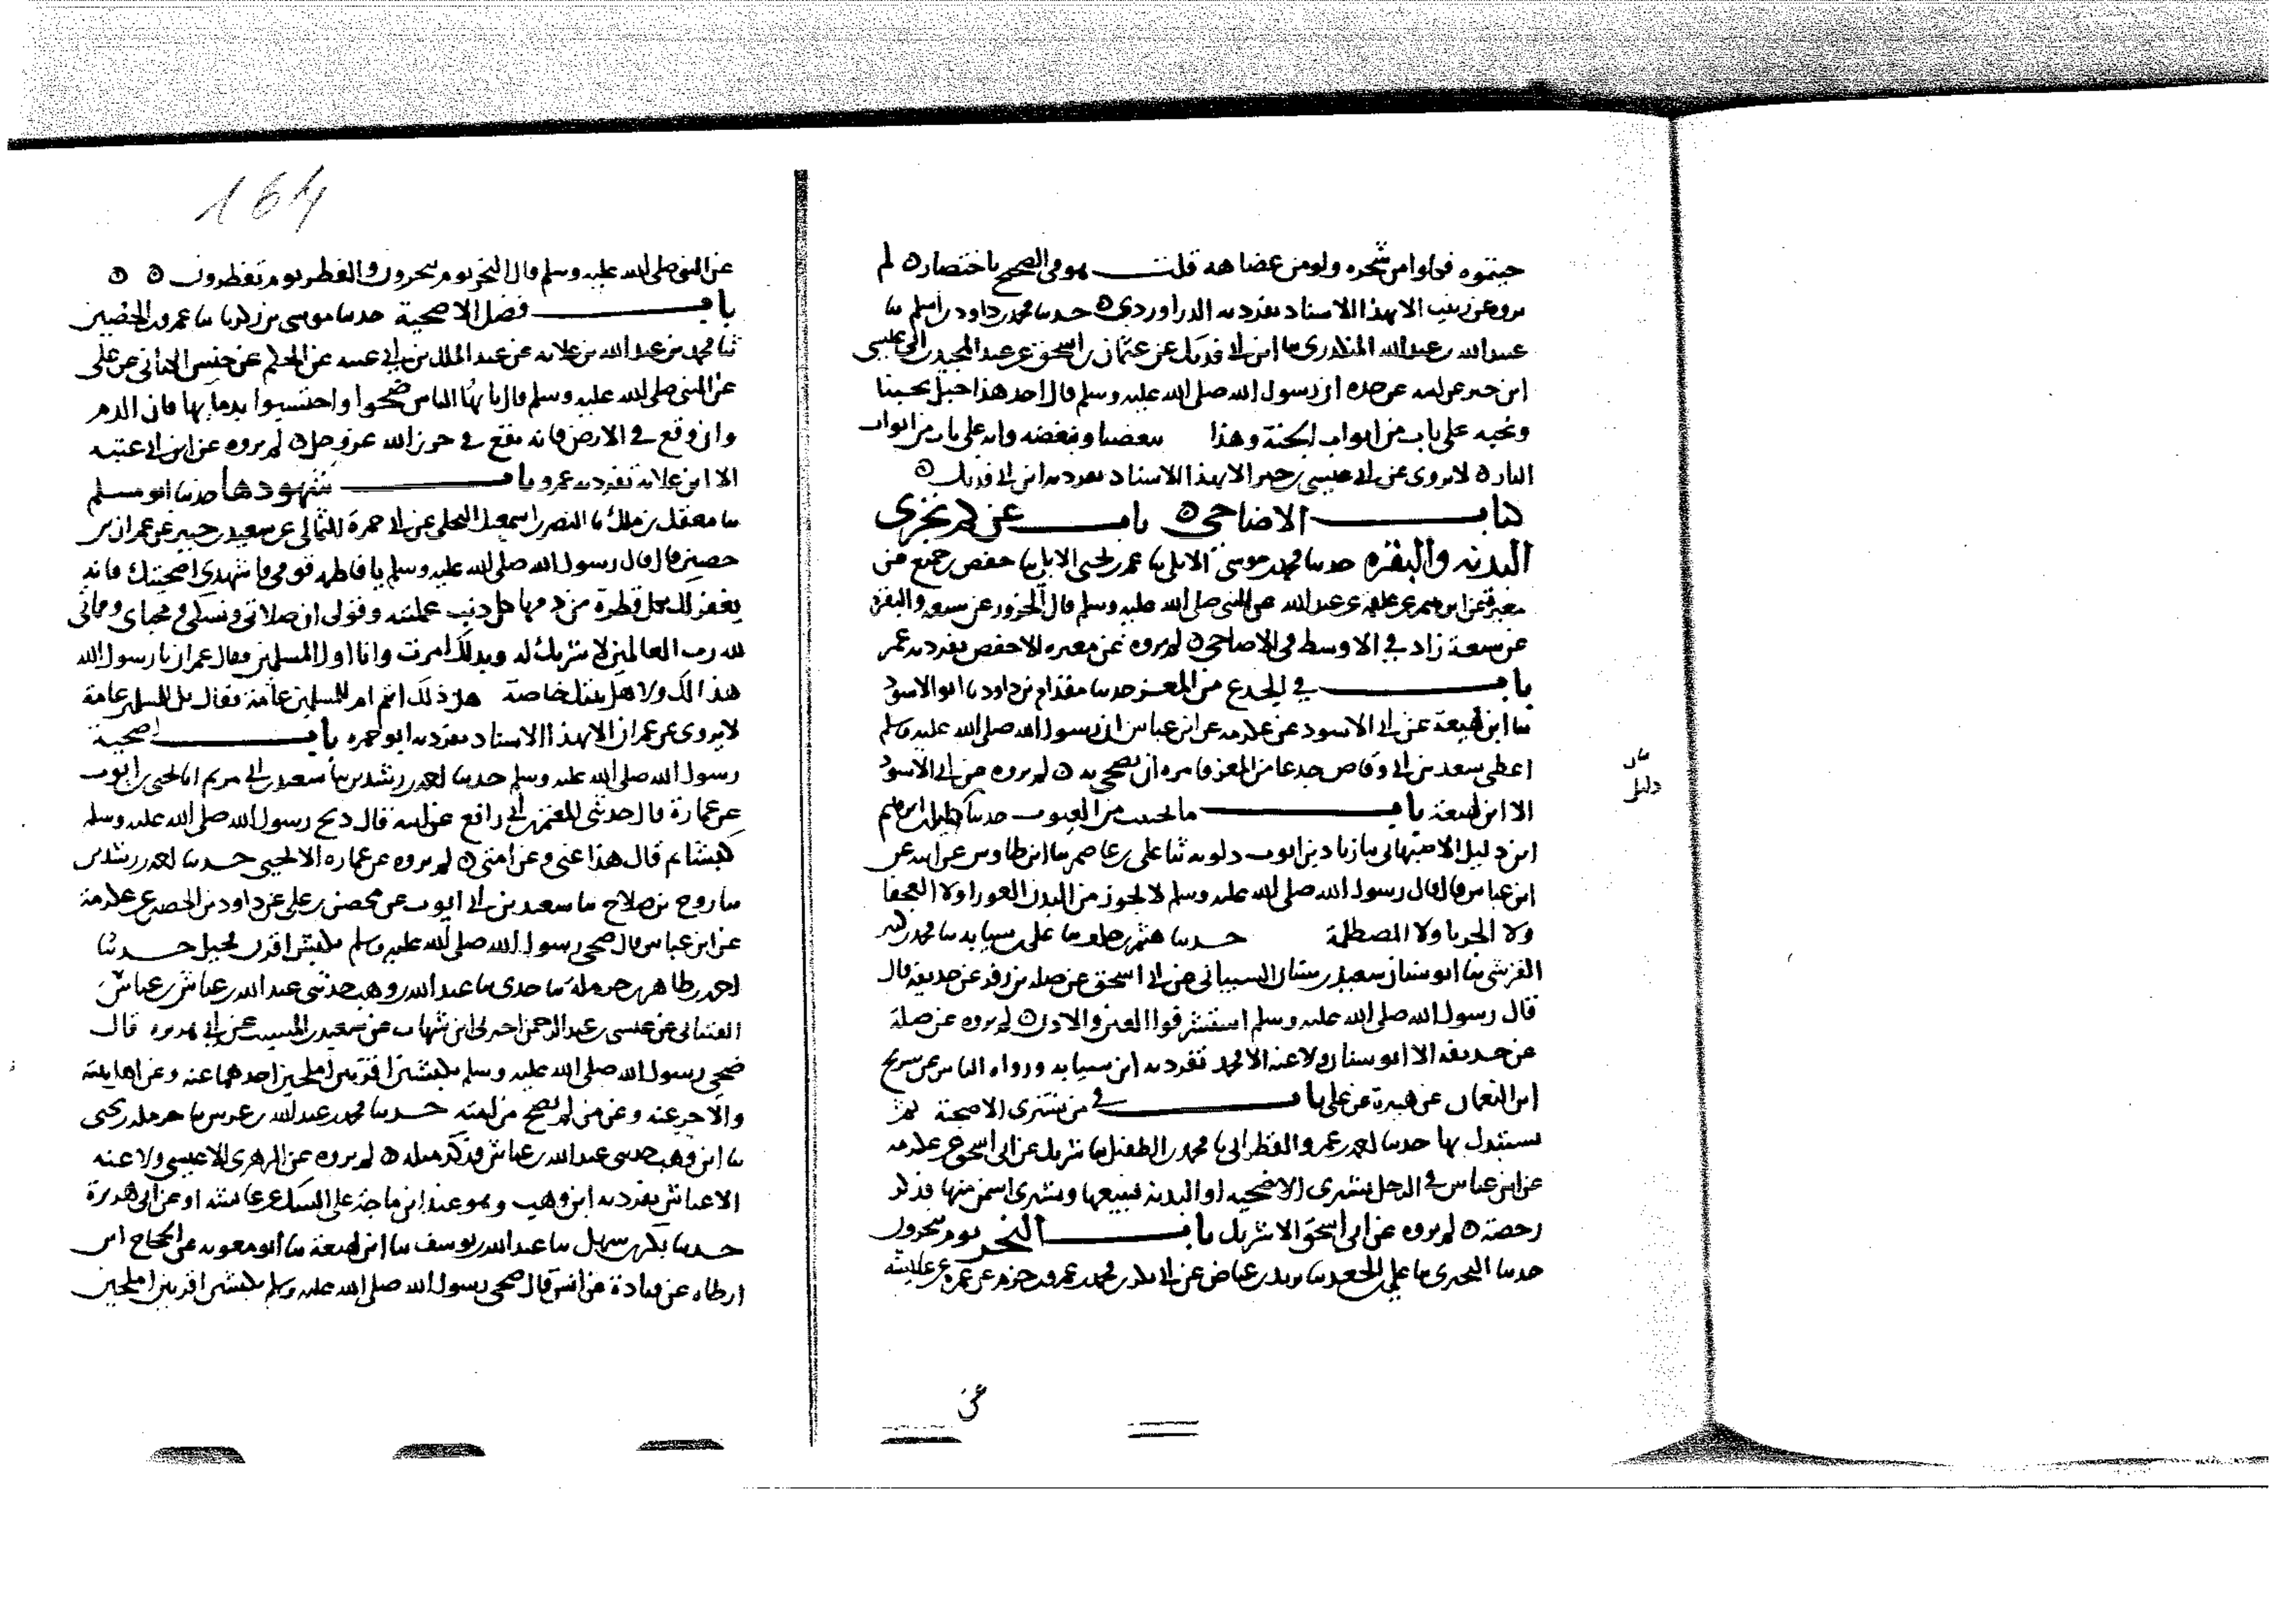 جيتموه فكلوا من شجره ولو من عضاهه قلت هو في الصحيح باختصار لم
يروه عن زينب الا بهذا الاسناد تفرد به الدراوردي حدثنا محمد بن داود بن اسلم ثنا
عبيد الله بن عبد الله المنكدري ثنا ابن ابي فديك عن عثمان بن اسحق عن عبد المجيد بن ابي عبس
ابن جبر عن ابيه عن جده ان رسول الله صلى الله عليه وسلم قال احد هذا جبل يحبنا
ونحبه على باب من ابواب الجنة وهذا يبغضنا ونبغضه وانه على باب من ابواب
النار لا يروى عن ابي عبس بن جبر الا بهذا الاسناد تفرد به ابن ابي فديك
كتاب الاضاحي باب عن كم تجزى
البدنه والبقره حدثنا محمد بن موسى الابلي ثنا عمر بن يحيى الابلي ثنا حفص بن جميع عن
مغيرة عن ابراهيم عن علقمه عن عبد الله عن النبي صلى الله عليه وسلم قال الجزور عن سبعه والبقرة
عن سبعة زاد في الاوسط في الاضاحي لم يروه عن مغيره الا حفص تفرد به عمر
باب في الجذع من المعز حدثنا مقدام بن داود ثنا ابو الاسود
ثنا ابن لهيعة عن ابي الاسود عن عكرمه عن ابن عباس ان رسول الله صلى الله عليه وسلم
اعطى سعد بن ابي وقاص جذعا من المعز فامره ان يضحي به لم يروه عن ابي الاسود
الا ابن لهيعة باب ما يجتنب من العيوب حدثنا ابراهيم
ابن دليل الاصبهاني ثنا زياد بن ايوب دلويه ثنا علي بن عاصم ثنا ابن طاوس عن ابيه عن
ابن عباس قال قال رسول الله صلى الله عليه وسلم لا يجوز من البدن العورا ولا العجفا
ولا الجربا ولا المصطلمة حدثنا هيثم بن خلف ثنا علي بن سيابه ثنا محمد بن كثير
القرشي ثنا ابو سنان سعيد بن سنان الشيباني عن ابي اسحق عن صله بن زفر عن حذيفه قال
قال رسول الله صلى الله عليه وسلم استشرفوا العين والاذن لم يروه عن صلة
عن حذيفه الا ابو سنان ولا عنه الا محمد تفرد به ابن سيابه ورواه الناس عن شريح
ابن النعمان عن هبيرة عن علي باب في من يشترى الاضحية ثم
يستبدل بها حدثنا احمد بن عمرو القطراني ثنا محمد بن الطفيل ثنا شريك عن ابي اسحق عن عكرمه
عن ابن عباس في الرجل يشترى الاضحيه او البدنه فيبيعها ويشترى اسمن منها فذكر
رخصة لم يروه عن ابي اسحق الا شريك باب النحر يوم تنحرون
حدثنا علي بن الجعد ثنا يزيد بن عياض عن ابي بكر بن محمد بن عمرو بن حزم عن عمرة عن عايشه
عن
دليل
164
عن النبي صلى الله عليه وسلم قال النحر يوم تنحرون والفطر يوم تفطرون
باب فضل الاضحية حدثنا موسى بن زكريا ثنا عمرو بن الحصين
ثنا محمد بن عبد الله بن علاثه عن عبد الملك بن ابي عتبه عن الحكم عن حنش الكناني عن علي
عن النبي صلى الله عليه وسلم قال يا يها الناس ضحوا واحتسبوا بدمايها فان الدم
وان وقع في الارض فانه يقع في حرز الله عز وجل لم يروه عن ابن ابي عتبه
الا ابن علاثه تفرد به عمرو باب شهودها حدثنا ابو مسلم
ثنا معقل بن مالك ثنا النضر بن اسمعيل البجلي عن ابي حمزة الثمالي عن سعيد بن جبير عن عمران بن
حصين قال قال رسول الله صلى الله عليه وسلم يا فاطمه قومي فاشهدي اضحيتك فانه
يغفر لك بكل قطرة من دمها كل ذنب عملته وقولي ان صلاتي ونسكي ومحياي ومماتي
لله رب العالمين لا شريك له وبذلك امرت وانا اول المسلمين فقال عمران يا رسول الله
هذا لك ولاهل بيتك خاصة هل ذلك انتم ام للمسلمين عامة فقال بل للمسلمين عامة
لا يروى عن عمران الا بهذا الاسناد تفرد به ابو حمزه باب اضحية
رسول الله صلى الله عليه وسلم حدثنا احمد بن رشدين ثنا سعيد بن ابي مريم انا يحيى بن ايوب
عن عمارة قال حدثني المعتمر بن ابي رافع عن ابيه قال ذبح رسول الله صلى الله عليه وسلم
كبشا ثم قال هذا عني وعن امتي لم يروه عن عماره الا يحيى حدثنا احمد بن رشدين
ثنا روح بن صلاح ثنا سعيد بن ابي ايوب عن محصن بن علي عن داود بن الحصين عن عكرمة
عن ابن عباس قال ضحى رسول الله صلى الله عليه وسلم بكبش اقرن كحيل حدثنا
احمد بن طاهر بن حرملة ثنا جدي ثنا عبد الله بن وهب حدثني عبد الله بن عياش بن عباس
القتباني عن عيسى بن عبد الرحمن اخبرني ابن شهاب عن سعيد بن المسيب عن ابي هريره قال
ضحى رسول الله صلى الله عليه وسلم بكبشين اقرنين املحين احدهما عنه وعن اهل بيته
والاخر عنه وعن من لم يضح من امته حدثنا محمد بن عبد الله بن عرس ثنا حرمله بن يحيى
ثنا ابن وهب حدثني عبد الله بن عياش فذكر مثله لم يروه عن الزهري الا عيسى ولا عنه
الا عياش تفرد به ابن وهب وهو عند ابن ماجة على الشك عن عايشه او عن ابي هريرة
حدثنا بكر بن سهل ثنا عبد الله بن يوسف ثنا ابن لهيعة ثنا ابو معويه عن الحجاج ابن
ارطاه عن قتادة عن انس قال ضحى رسول الله صلى الله عليه وسلم بكبشين اقرنين املحين